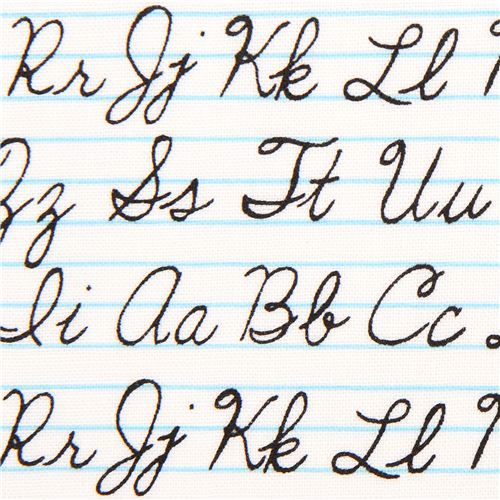 Rr Jj Kk Ll
Zz Ss Tt Uu
Ii Aa Bb Cc
Rr Jj Kk Ll